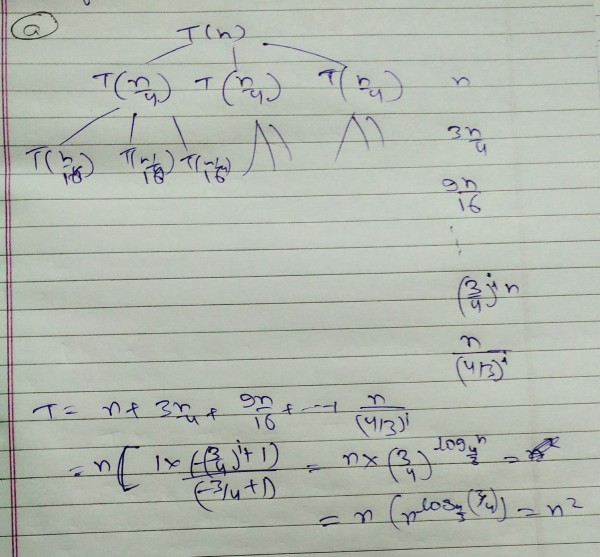 a
T(n)
T(n/4) T(n/4) T(n/4) n
3n/4
T(n/16) T(n/16) T(n/16)
9n/16
⋮
(3/4)^i n
n/(4/3)^i
T = n + 3n/4 + 9n/16 + --- n/(4/3)^i
= n [ 1×(-(3/4)^i+1)/(-3/4+1) = n×(3/4)^log_{4/3} n =
= n (n^log_{4/3}(3/4)) = n²